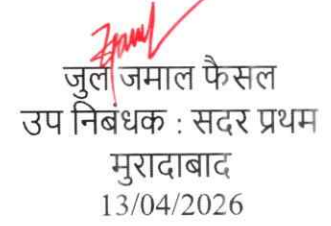 जुल जमाल फैसल
उप निबंधक : सदर प्रथम
मुरादाबाद
13/04/2026